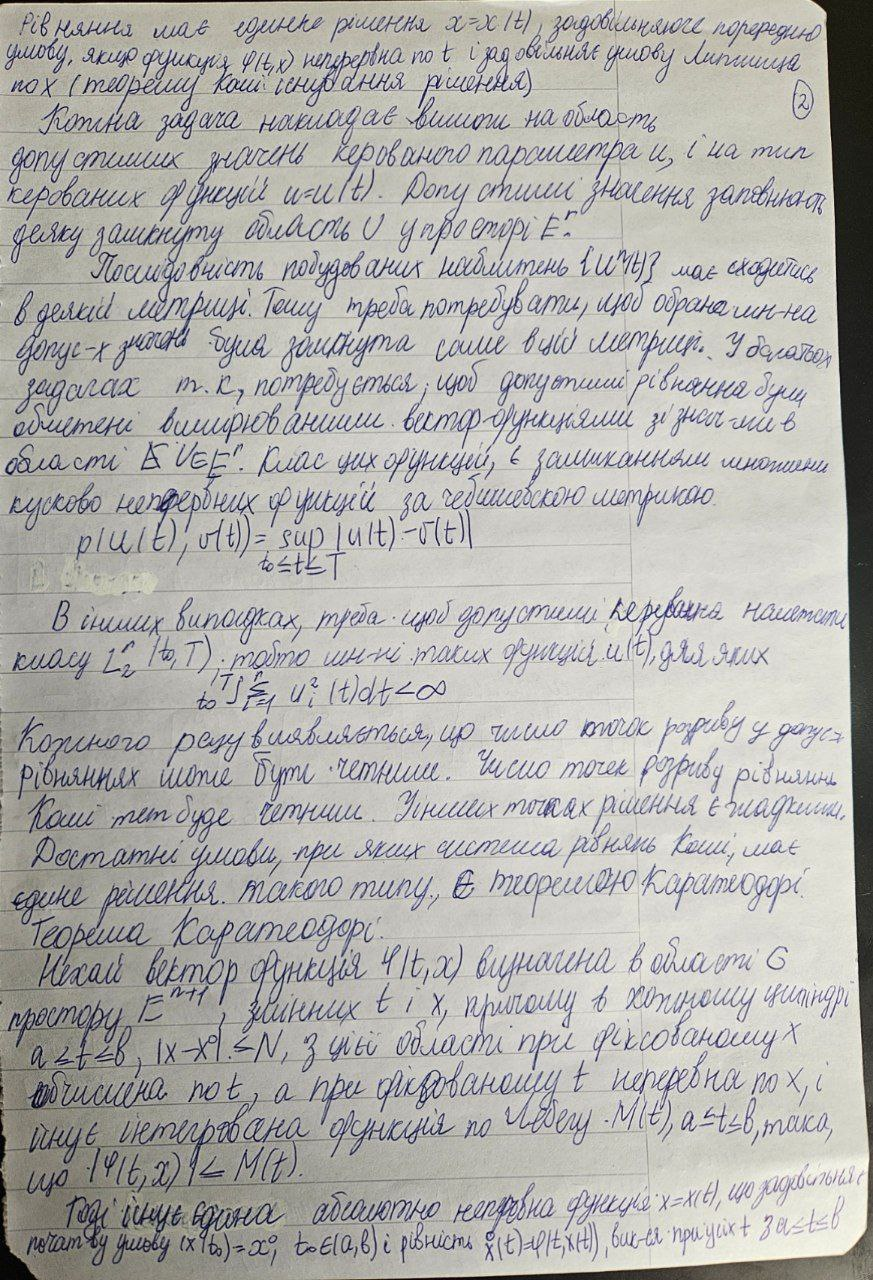 Рівняння має єдинне рішення x=x(t), задовільняюче попередню
умову, якщо функція φ(t,x) неперервна по t і задовільняє умову Липшица
по x (теорему Коші існування рішення)
2
Кожна задача накладає вимоги на область
допустимих значень керованого параметра u, і на тип
керованих функцій u=u(t). Допустимі значення заповнюють
деяку замкнуту область U у просторі Eⁿ.
Послідовність побудованих наближень {uⁿ(t)} має сходитись
в деякій метриці. Тому треба потребувати, щоб обрана мн-на
допус-х значень була замкнута саме в цій метриці. У багатьох
задачах т.к, потребується, щоб допустимі рівняння були
обмежені вимірюваними вектор-функціями зі знач-ми в
області U∈Eⁿ. Клас цих функцій, є замиканням множини
кусково неперервних функцій за чебишевскою метрикою.
p(u(t), v(t)) = sup |u(t)-v(t)|
t₀≤t≤T
В інших випадках, треба щоб допустимі керування належати
класу L₂ⁿ (t₀,T), тобто мн-ні таких функція u(t), для яких
t₀∫ᵀ Σⁿᵢ₌₁ uᵢ²(t)dt<∞
Кожного разу виявляється, що число точок розриву у допус-х
рівняннях може бути четним. Число точек розриву рівняння
Коші теж буде четним. У інших точках рішення є гладкими.
Достатні умови, при яких система рівнянь Коші, має
єдине рішення такого типу, є теоремою Каратеодорі.
Теорема Каратеодорі.
Нехай вектор функція φ(t,x) визначена в області G
простору Eⁿ⁺¹, змінних t і x, причому в кожному циліндрі
a≤t≤b, |x-x⁰|≤N, з цієї області при фіксованому x
обчислена по t, а при фіксованому t неперевна по x, і
існує інтегрована функція по Лебегу M(t), a≤t≤b, така,
що |φ(t,x)|≤M(t).
Тоді існує єдина абсолютно неперевна функція x=x(t), що задовільняє
почат-ву умову (x(t₀)=x⁰, t₀∈(a,b) і рівність ẋ(t)=φ(t,x(t)), вик-ся при усіх t з a≤t≤b